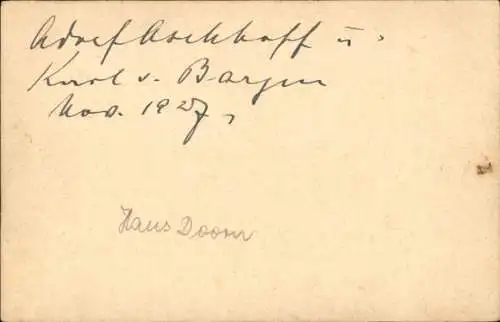 Adolf Aschhoff u.
Karl v. Bargen
Nov. 1927.
Haus Doorn